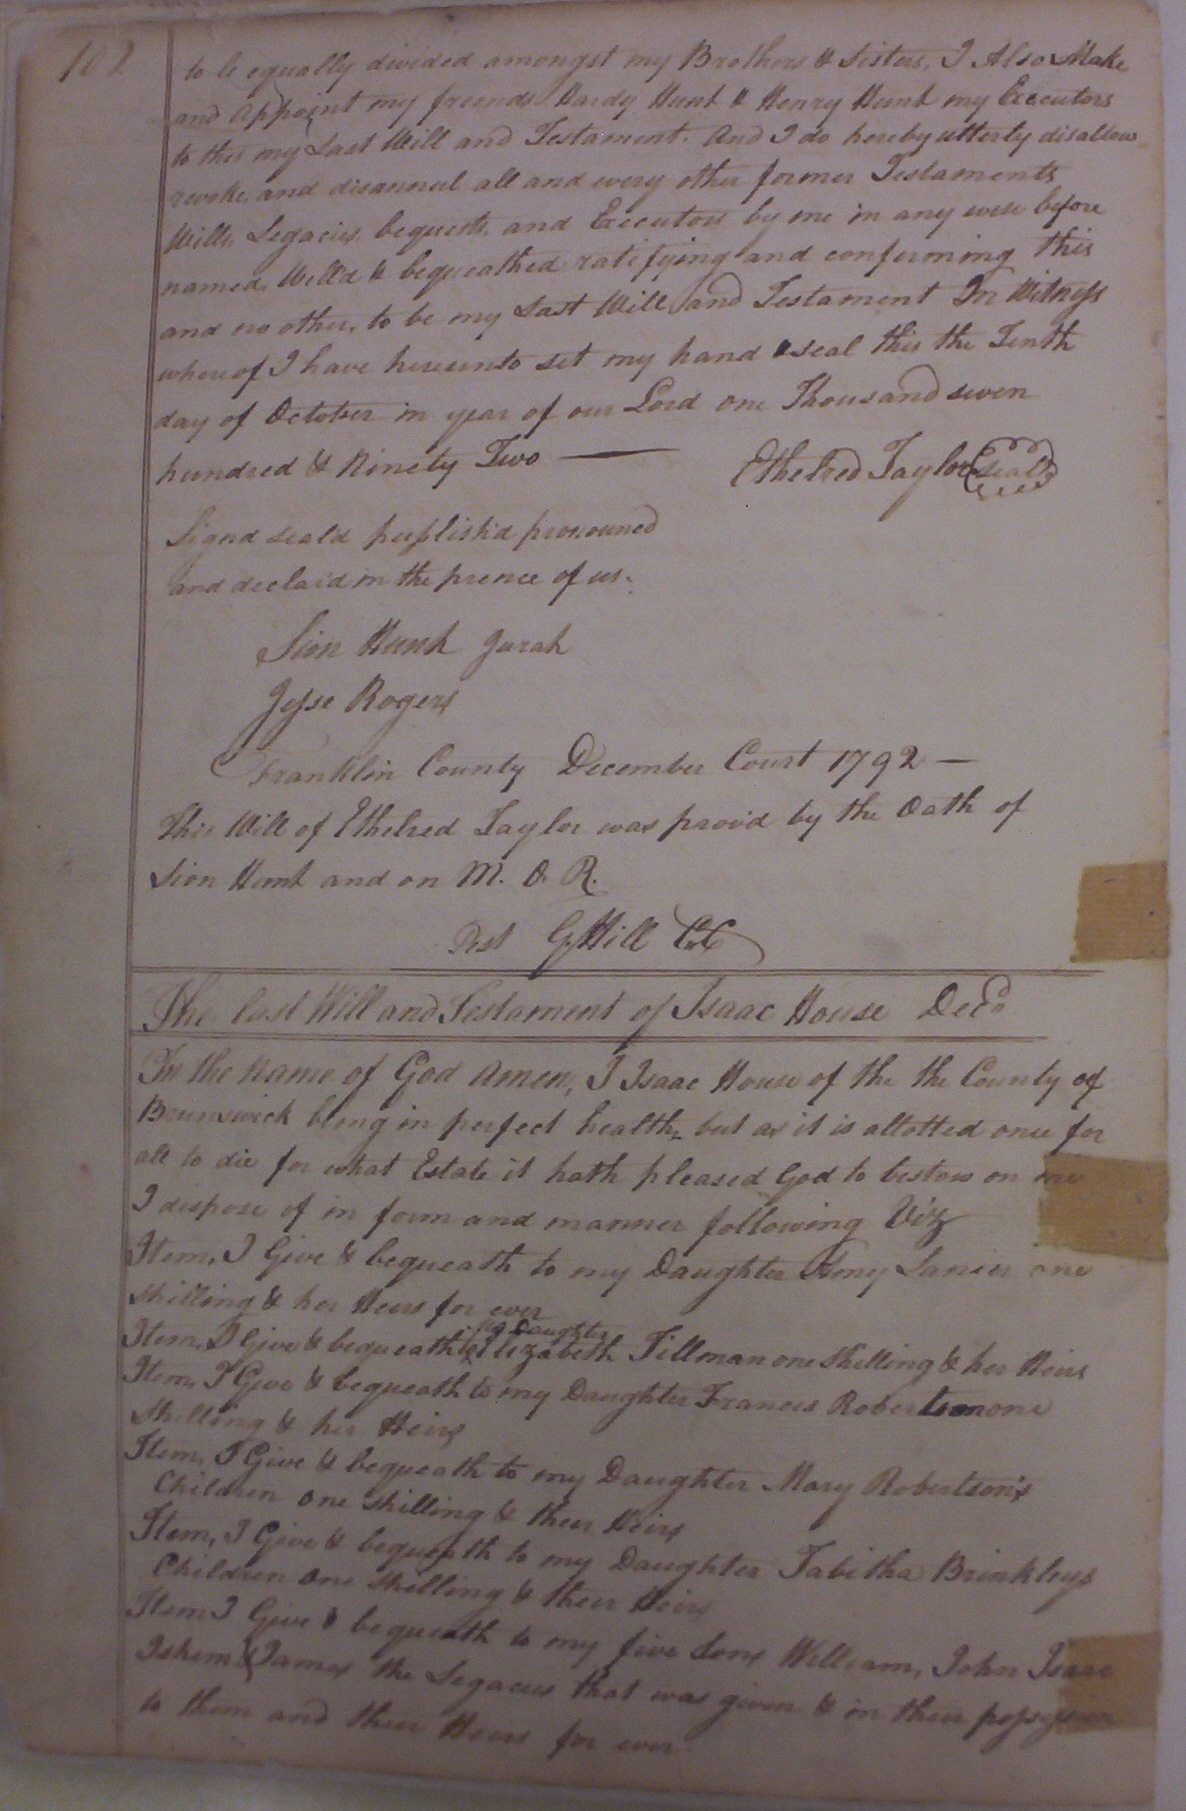 102
to be equally divided amongst my Brothers & Sisters, I Also Make
and Appoint my friends Hardy Hunt & Henry Hunt my Executors
to this my Last Will and Testament. And I do hereby utterly disallow
revoke, and disannul all and every other former Testaments
Wills, Legacies, bequests, and Executors by me in any wise before
named, Will'd & bequeathed ratifying and confirming this
and no other, to be my Last Will and Testament In Witness
whereof I have hereunto set my hand & seal this the Tenth
day of October in year of our Lord one Thousand seven
hundred & Ninety Two — Ethelred Taylor (Seal)
Signd seald puplish'd pronounced
and declaid in the prence of us.
Sion Hunt Jurat
Jesse Rogers
Franklin County December Court 1792 —
This Will of Ethelred Taylor was prov'd by the Oath of
Sion Hunt and on M. O. R.
Test G Hill CC
The last Will and Testament of Isaac House Decd
In the Name of God Amen, I Isaac House of the the County of
Brunswick being in perfect health, but as it is allotted once for
all to die for what Estate it hath pleased God to bestow on me
I dispose of in form and manner following Viz
Item, I Give & bequeath to my Daughter Amy Lanier one
shilling & her Heirs for ever
my Daughter
Item, I Give & bequeath to Elizabeth Tillman one shilling & her Heirs
Item, I Give & bequeath to my Daughter Frances Robertson one
Shilling & her Heirs
Item, I Give & bequeath to my Daughter Mary Robertson's
Children one shilling & their Heirs
Item, I Give & bequeath to my Daughter Tabitha Brinkleys
Children one shilling & their Heirs
Item I Give & bequeath to my five Sons William, John Isaac
Ishem & James the Legacies that was given & in their possession
to them and their Heirs for ever